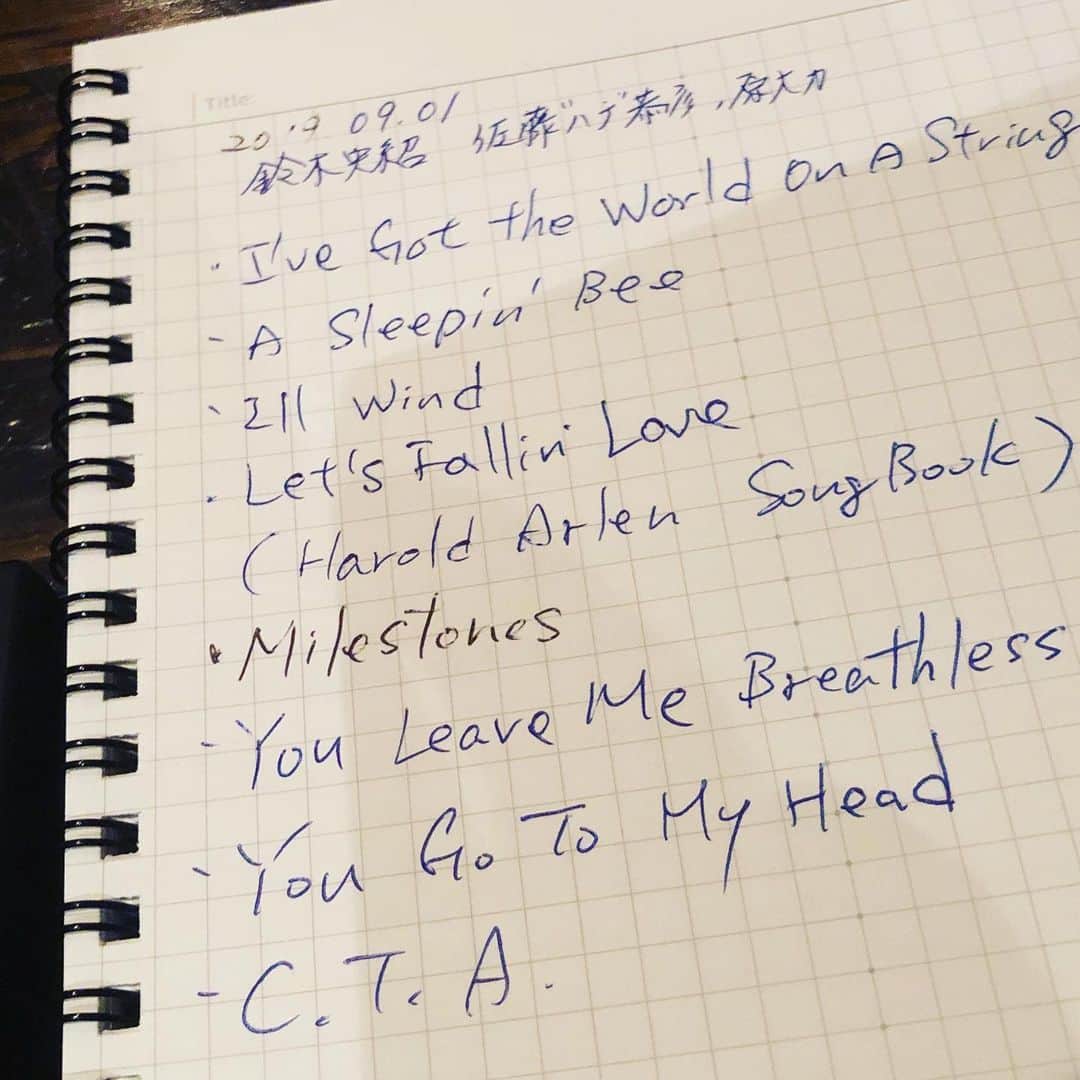 Title
2019 09.01
鈴木央紹 佐藤"ハチ"恭彦、原大力
・I've Got the World On A String
- A Sleepin' Bee
・Ill Wind
・Let's Fallin' Love
(Harold Arlen SongBook)
・Milestones
- You Leave Me Breathless
- You Go To My Head
- C.T.A.